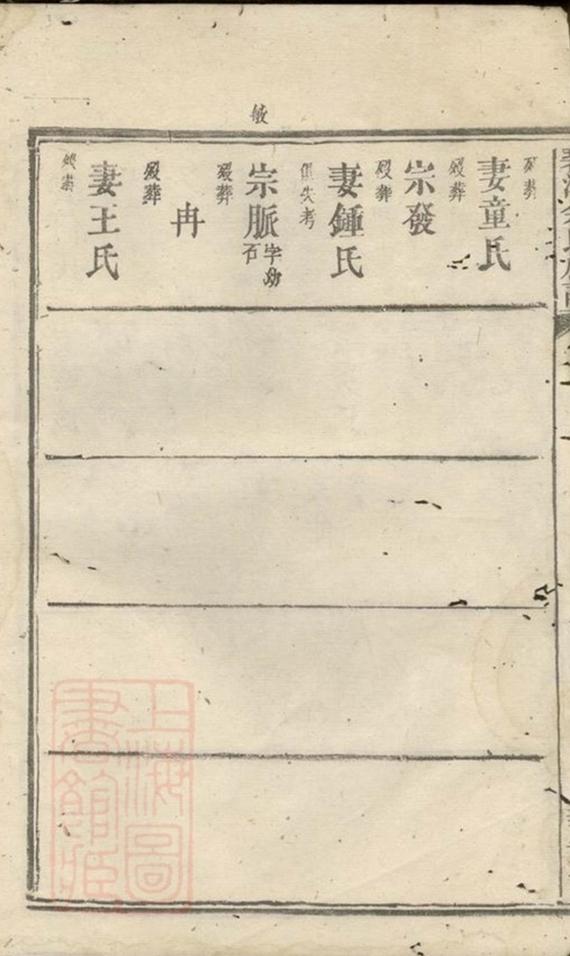 敏
歿葬
妻童氏
歿葬
宗發
歿葬
妻鍾氏
俱失考
宗脈字幼
石
歿葬
冉
歿葬
妻王氏
歿葬
上海圖
書館